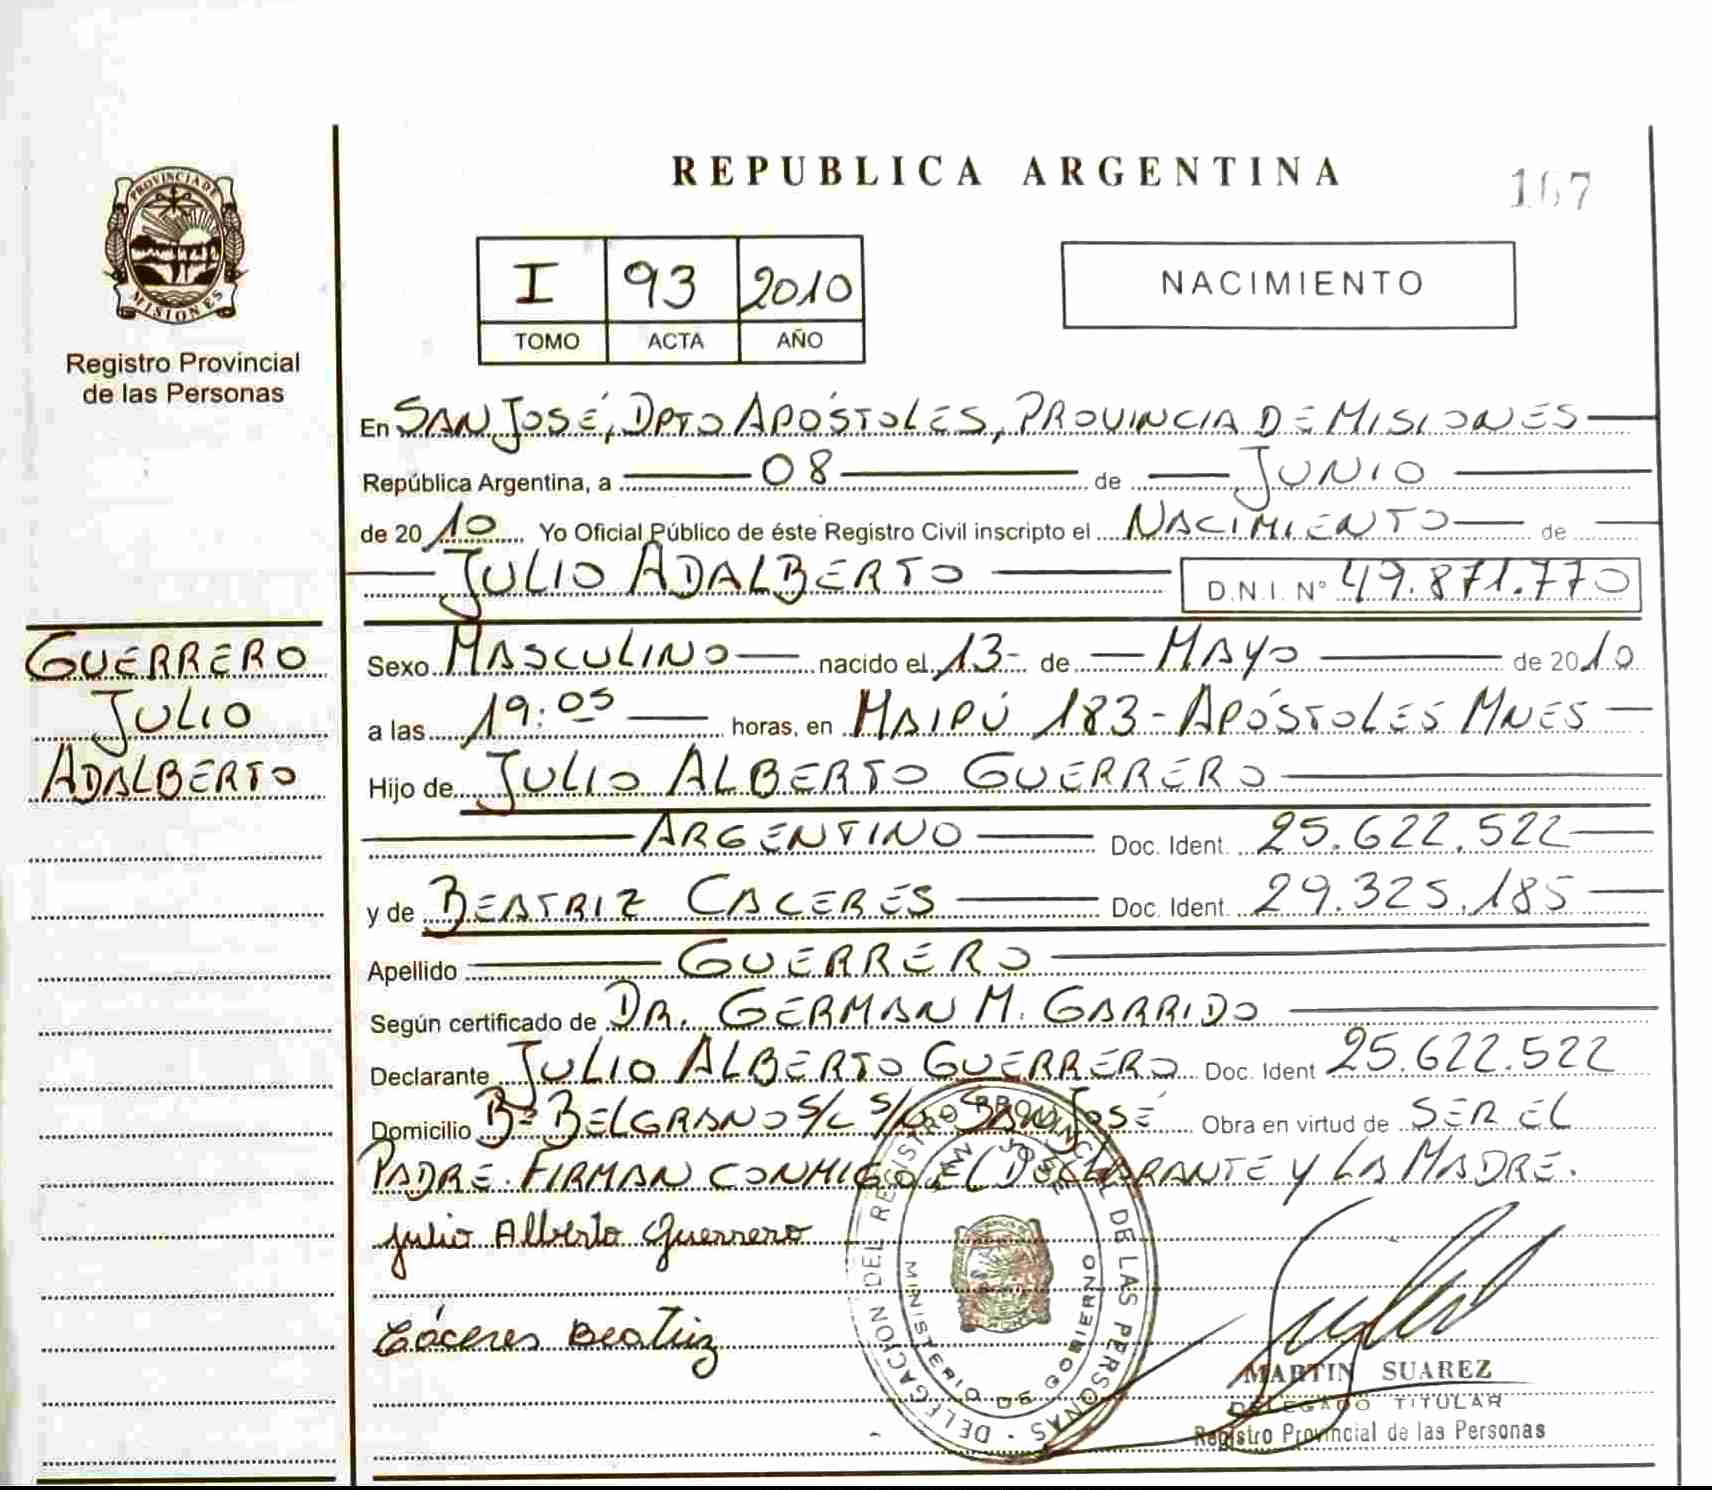 REPUBLICA ARGENTINA
167
PROVINCIA DE MISIONES
Registro Provincial
de las Personas
I 93 2010
TOMO ACTA AÑO
NACIMIENTO
En SAN JOSÉ, DPTO APÓSTOLES, PROVINCIA DE MISIONES
República Argentina, a 08 de JUNIO
de 2010 Yo Oficial Público de éste Registro Civil inscripto el NACIMIENTO de
JULIO ADALBERTO D.N.I. N° 49.871.770
GUERRERO
JULIO
ADALBERTO
Sexo MASCULINO nacido el 13- de MAYO de 2010
a las 19:05 horas, en MAIPÚ 183 - APÓSTOLES MNES
Hijo de JULIO ALBERTO GUERRERO
ARGENTINO Doc. Ident. 25.622.522
y de BEATRIZ CACERES Doc. Ident. 29.325.185
Apellido GUERRERO
Según certificado de DR. GERMAN M. GARRIDO
Declarante JULIO ALBERTO GUERRERO Doc. Ident 25.622.522
Domicilio Bº BELGRANO S/C S/N SAN JOSÉ Obra en virtud de SER EL
PADRE. FIRMAN CONMIGO EL DECLARANTE Y LA MADRE.
Julio Alberto Guerrero
Cáceres Beatriz
DELEGACION DEL REGISTRO PROVINCIAL DE LAS PERSONAS
SAN JOSE MNES
MINISTERIO DE GOBIERNO
MARTIN SUAREZ
DELEGADO TITULAR
Registro Provincial de las Personas